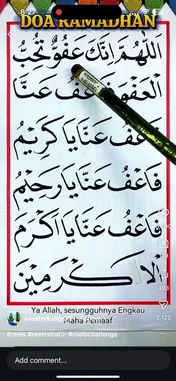 8:27
DOA RAMADHAN
اَللّٰهُمَّ اِنَّكَ عَفُوٌّ تُحِبُّ
الْعَفْوَ فَاعْفُ عَنَّا
فَاعْفُ عَنَّا يَا كَرِيْمُ
فَاعْفُ عَنَّا يَا رَحِيْمُ
فَاعْفُ عَنَّا يَا اَكْرَمَ
الْاَكْرَمِيْنَ
Ya Allah, sesungguhnya Engkau
Maha Pemaaf
493
2,122
#reels #reelsviral #reelschallenge
Add comment...